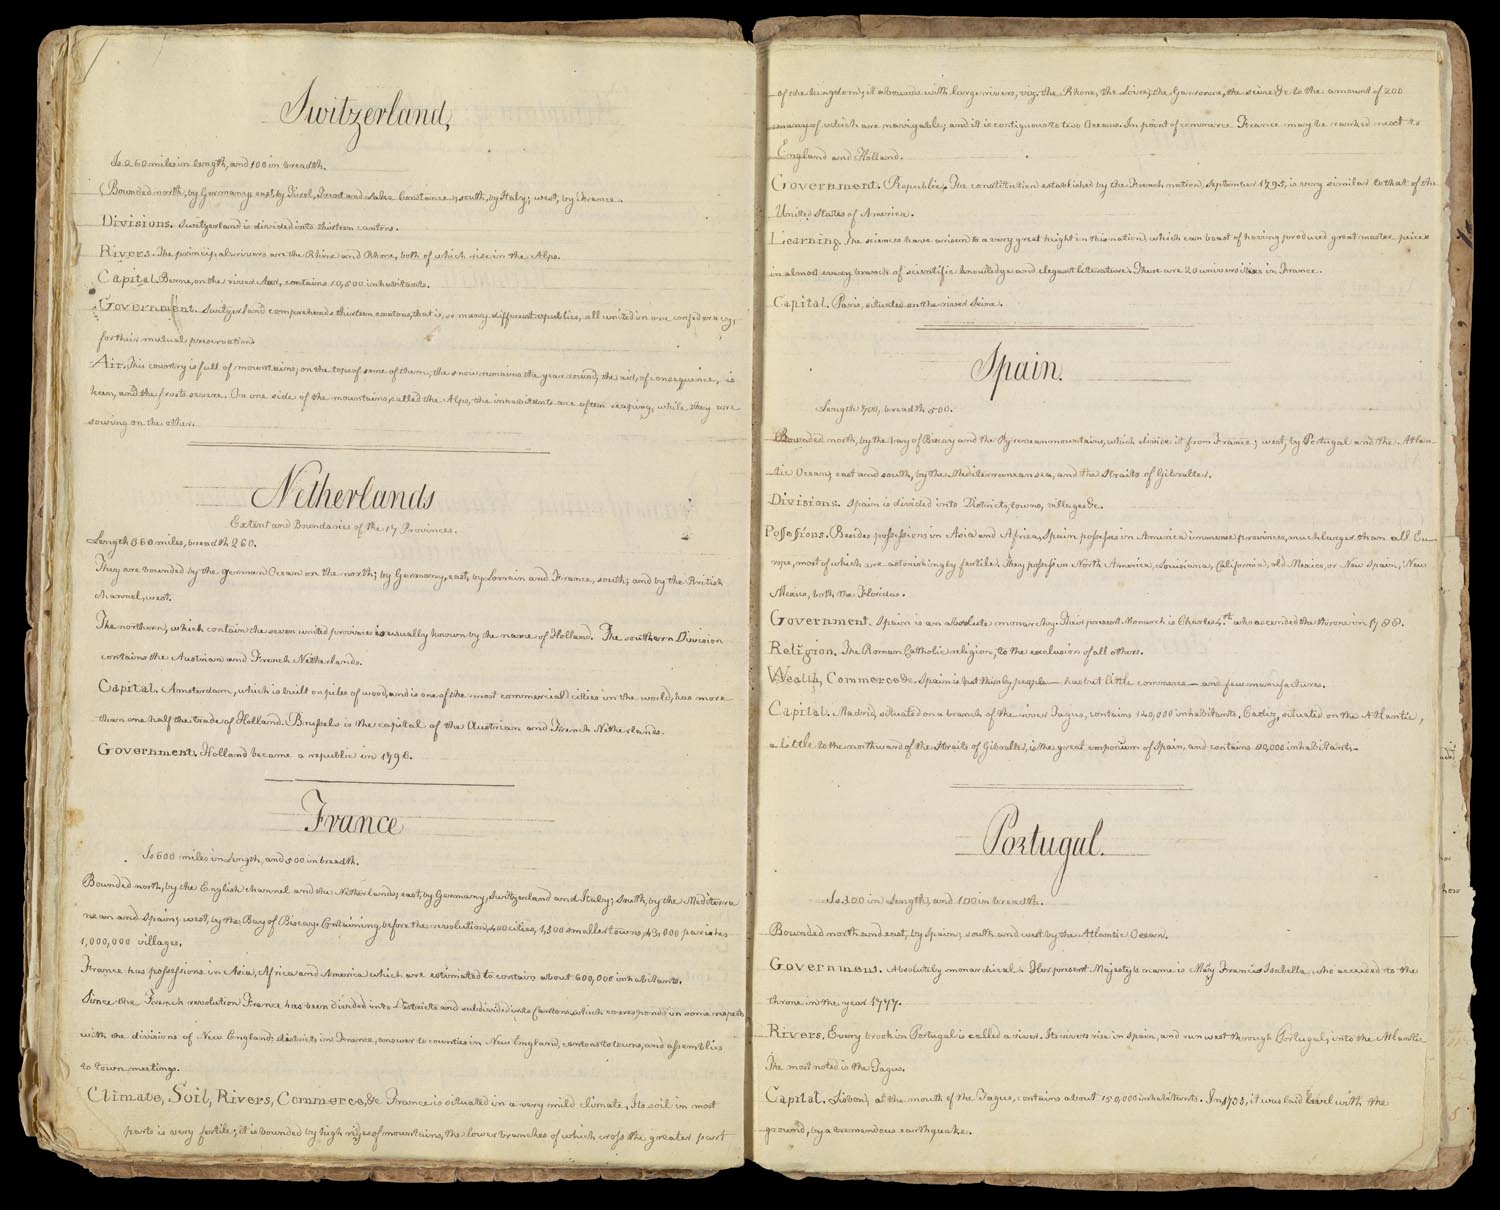 Switzerland,
Is 260 miles in length, and 100 in breadth.
Bounded north, by Germany; east, by Tirol, Trent and Lake Constance; south, by Italy; west, by France.
Divisions. Switzerland is divided into thirteen cantons.
Rivers. The principal rivers are the Rhine and Rhone, both of which rise in the Alps.
Capital. Berne, on the river Aar, contains 10,500 inhabitants.
Government. Switzerland comprehends thirteen cantons, that is, so many different republics, all united in one confederacy,
for their mutual preservation
Air. This country is full of mountains; on the tops of some of them, the snow remains the year round; the air, of consequence, is
keen, and the frosts severe. On one side of the mountains, called the Alps, the inhabitants are often reaping, while they are
sowing on the other.
Netherlands
Extent and Boundaries of the 17 Provinces.
Length 360 miles, breadth 260.
They are bounded by the german Ocean on the north; by Germany, east, by Lorrain and France, south; and by the British
channel, west.
The northern, which contain the seven united province is usually known by the name of Holland. The southern Division
contains the Austrian and French Netherlands.
Capital. Amsterdam, which is built on piles of wood, and is one of the most commercial cities in the world, has more
than one half the trade of Holland. Brussels is the capital of the Austrian and French Netherlands.
Government. Holland became a republic in 1798.
France
Is 600 miles in Length, and 500 in breadth.
Bounded north, by the English channel and the Netherlands; east, by Germany, Switzerland and Italy; South, by the Mediterra
nean and Spain; west, by the Bay of Biscay. Containing, before the revolution, 400 cities, 1,500 smaller towns, 43,000 parishes
1,000,000 villages.
France has possessions in Asia, Africa and America which are estimated to contain about 600,000 inhabitants.
Since the French revolution France has been divided into Districts and subdivided into Cantons, which corresponds in some respects
with the divisions of New England; districts in France, answer to counties in New England, cantons to towns, and assemblies
to town meetings.
Climate, Soil, Rivers, Commerce, &c France is situated in a very mild climate, Its soil in most
parts is very fertile; it is bounded by high ridges of mountains, the lower branches of which cross the greater part
of the kingdom; it abounds with large rivers, viz. the Rhone, the Loire, the Garronne, the Seine &c to the amount of 200
many of which are navigable; and it is contiguous to two Oceans. In point of commerce France may be ranked next to
England and Holland.
Government. (Republic). The constitution established by the French nation, September 1795, is very similar to that of the
United States of America.
Learning. The sciences have arisen to a very great height in this nation, which can boast of having produced great master pieces
in almost every branch of scientific knowledge and elegant literature. There are 20 universities in France.
Capital. Paris, situated on the river Seine.
Spain.
Length 700, breadth 500.
Bounded north, by the bay of Biscay and the Pyrenean mountains, which divide it from France; west, by Portugal and the Atlan-
tic Ocean; east and south, by the Mediterranean sea, and the Straits of Gibralter.
Divisions. Spain is divided into Districts, towns, villages &c.
Possesions. Besides possessions in Asia and Africa, Spain possesses in America immense provinces, much larger than all Eu-
rope, most of which are astonishingly fertile. They possess in North America, Louisiana, California, old Mexico, or New Spain, New
Mexico, both the Floridas.
Government. Spain is an absolute monarchy. Their present Monarch is Charles 4.th who ascended the throne in 1788.
Religion. The Roman Catholic religion, to the exclusion of all others.
Wealth, Commerce &c. Spain is but thinly people— has but little commerce — and few manufactures.
Capital. Madrid, situated on a branch of the river Tagus, contains 140,000 inhabitants. Cadiz, situated on the Atlantic,
a little to the northward of the Straits of Gibralter, is the great emporium of Spain, and contains 80,000 inhabitants.
Portugal.
Is 300 in Length, and 100 in breadth.
Bounded north and east, by Spain; south and west by the Atlantic Ocean.
Government. Absolutely monarchical. Her present Majesty's name is Mary Francis Isabella, who acceded to the
throne in the year 1777.
Rivers. Every brook in Portugal is called a river. Its rivers rise in Spain, and run west through Portugal, into the Atlantic
The most noted is the Tagus.
Capital. Lisbon, at the mouth of the Tagus, contains about 150,000 inhabitants. In 1755, it was laid level with the
ground, by a tremendous earthquake.